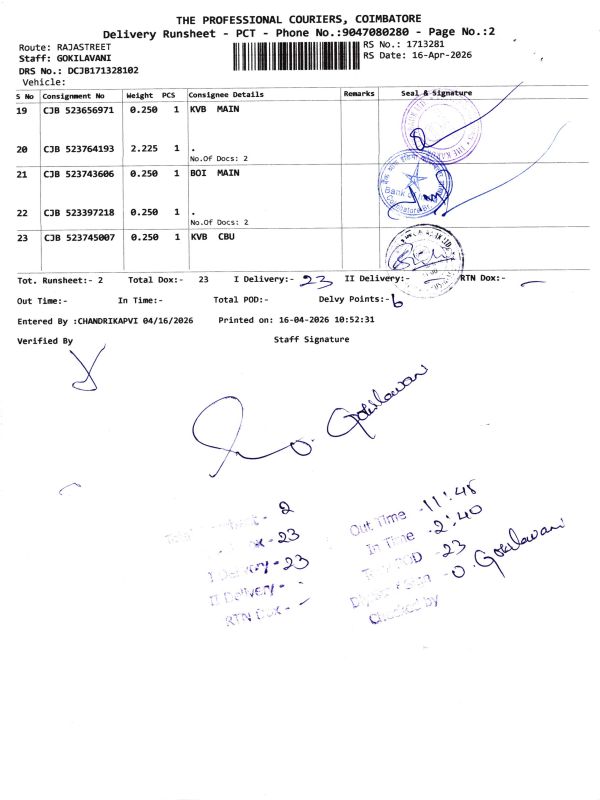 THE PROFESSIONAL COURIERS, COIMBATORE
Delivery Runsheet - PCT - Phone No.:9047080280 - Page No.:2
Route: RAJASTREET
RS No.: 1713281
Staff: GOKILAVANI
RS Date: 16-Apr-2026
DRS No.: DCJB171328102
Vehicle:
S No Consignment No Weight PCS Consignee Details Remarks Seal & Signature
19 CJB 523656971 0.250 1 KVB MAIN
20 CJB 523764193 2.225 1 .
No.Of Docs: 2
21 CJB 523743606 0.250 1 BOI MAIN
22 CJB 523397218 0.250 1 .
No.Of Docs: 2
23 CJB 523745007 0.250 1 KVB CBU
Tot. Runsheet:- 2 Total Dox:- 23 I Delivery:- 23 II Delivery:- RTN Dox:- -
Out Time:- In Time:- Total POD:- Delvy Points:- 6
Entered By :CHANDRIKAPVI 04/16/2026 Printed on: 16-04-2026 10:52:31
Verified By Staff Signature
O. Gokilavani
- 2
- 23
I Delivery - 23
II Delivery - -
RTN Dox - -
Out Time - 11:48
In Time - 2:40
POD - 23
- O. Gokilavani
Checked by